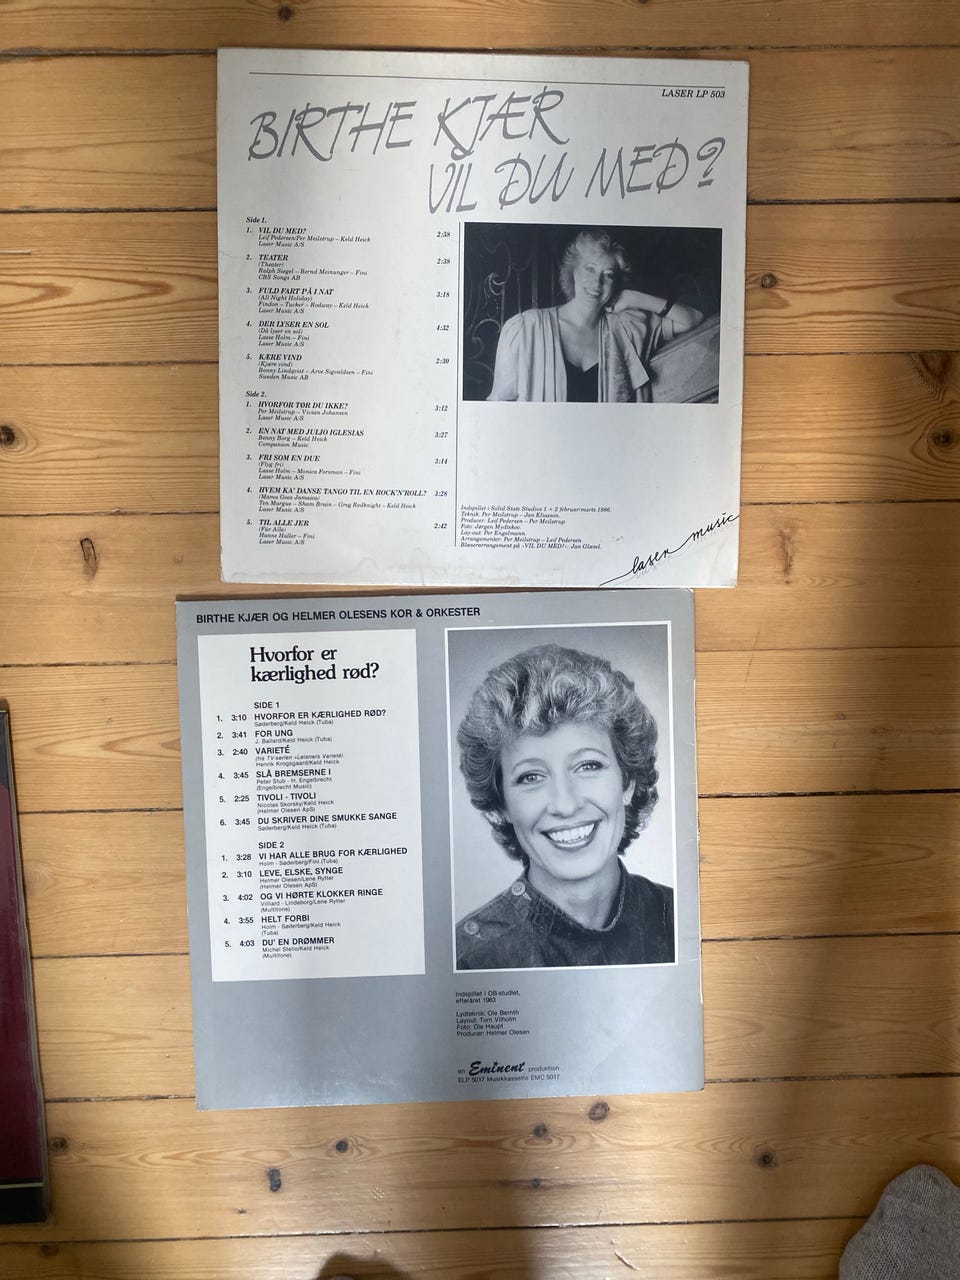 LASER LP 503
BIRTHE KJÆR
VIL DU MED?
Side 1.
1. VIL DU MED? 2:58
Leif Pedersen/Per Meilstrup – Keld Heick
Laser Music A/S
2. TEATER 2:38
(Theater)
Ralph Siegel – Bernd Meinunger – Fini
CBS Songs AB
3. FULD FART PÅ I NAT 3:18
(All Night Holiday)
Findon – Tucker – Rodway – Keld Heick
Laser Music A/S
4. DER LYSER EN SOL 4:32
(Då lyser en sol)
Lasse Holm – Fini
Laser Music A/S
5. KÆRE VIND 2:30
(Kjære vind)
Bonny Lindqvist – Arve Sigvaldsen – Fini
Sweden Music AB
Side 2.
1. HVORFOR TØR DU IKKE? 3:12
Per Meilstrup – Vivian Johansen
Laser Music A/S
2. EN NAT MED JULIO IGLESIAS 3:27
Benny Borg – Keld Heick
Companion Music
3. FRI SOM EN DUE 3:14
(Flyg fri)
Lasse Holm – Monica Forsman – Fini
Laser Music A/S
4. HVEM KA' DANSE TANGO TIL EN ROCK'N'ROLL? 3:28
(Mama Goes Jamaica)
Ten Margue – Sham Brain – Greg Redknight – Keld Heick
Laser Music A/S
5. TIL ALLE JER 2:42
(Für Alle)
Hanne Haller – Fini
Laser Music A/S
Indspillet i Solid State Studios 1 + 2 februar/marts 1986.
Teknik: Per Meilstrup – Jan Eliasson.
Producer: Leif Pedersen – Per Meilstrup
Foto: Jørgen Mydtskov.
Lay-out: Per Engelmann.
Arrangementer: Per Meilstrup – Leif Pedersen.
Blæserarrangement på »VIL DU MED?«: Jan Glæsel.
laser music
BIRTHE KJÆR OG HELMER OLESENS KOR & ORKESTER
Hvorfor er
kærlighed rød?
SIDE 1
1. 3:10 HVORFOR ER KÆRLIGHED RØD?
Søderberg/Keld Heick (Tuba)
2. 3:41 FOR UNG
J. Ballard/Keld Heick (Tuba)
3. 2:40 VARIETÉ
(fra TV-serien »Leisners Varieté)
Henrik Krogsgaard/Keld Heick
4. 3:45 SLÅ BREMSERNE I
Peter Stub - H. Engelbrecht
(Engelbrecht Music)
5. 2:25 TIVOLI - TIVOLI
Nicolas Skorsky/Keld Heick
(Helmer Olesen ApS)
6. 3:45 DU SKRIVER DINE SMUKKE SANGE
Søderberg/Keld Heick (Tuba)
SIDE 2
1. 3:28 VI HAR ALLE BRUG FOR KÆRLIGHED
Holm - Søderberg/Fini (Tuba)
2. 3:10 LEVE, ELSKE, SYNGE
Helmer Olesen/Lene Rytter
(Helmer Olesen ApS)
3. 4:02 OG VI HØRTE KLOKKER RINGE
Villiard - Lindeborg/Lene Rytter
(Multitone)
4. 3:55 HELT FORBI
Holm - Søderberg/Keld Heick
(Tuba)
5. 4:03 DU' EN DRØMMER
Michel Stello/Keld Heick
(Multitone)
Indspillet i OB-studiet,
efteråret 1983
Lydteknik: Ole Bernth
Layout: Tom Vilholm
Foto: Ole Haupt
Producer: Helmer Olesen
en Eminent produktion
ELP 5017 Musikkassette EMC 5017